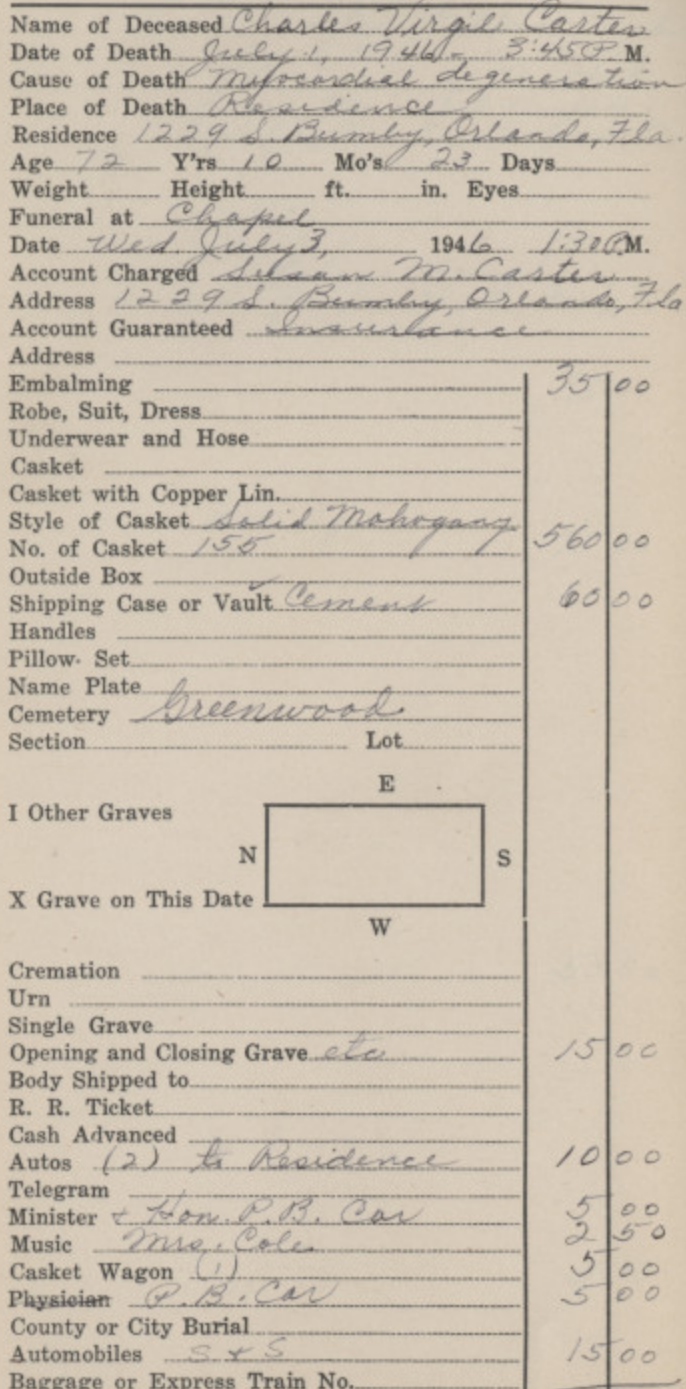 Name of Deceased Charles Virgil Carter
Date of Death July 1, 1946 - 3:45 P. M.
Cause of Death Myocardial degeneration
Place of Death Residence
Residence 1229 S. Bumby, Orlando, Fla.
Age 72 Y'rs 10 Mo's 23 Days
Weight Height ft. in. Eyes
Funeral at Chapel
Date Wed. July 3, 1946 1:30 P.M.
Account Charged Susan M. Carter
Address 1229 S. Bumby, Orlando, Fla
Account Guaranteed Insurance
Address
Embalming 35 00
Robe, Suit, Dress
Underwear and Hose
Casket
Casket with Copper Lin.
Style of Casket Solid Mahogany
No. of Casket 155 560 00
Outside Box
Shipping Case or Vault Cement 60 00
Handles
Pillow Set
Name Plate
Cemetery Greenwood
Section Lot
E
I Other Graves
N S
X Grave on This Date
W
Cremation
Urn
Single Grave
Opening and Closing Grave etc 15 00
Body Shipped to
R. R. Ticket
Cash Advanced
Autos (2) to Residence 10 00
Telegram
Minister + Hon. P.B. Car 5 00
Music Mrs. Cole 2 50
Casket Wagon (1) 5 00
Physician P.B. Car 5 00
County or City Burial
Automobiles S + S 15 00
Baggage or Express Train No.